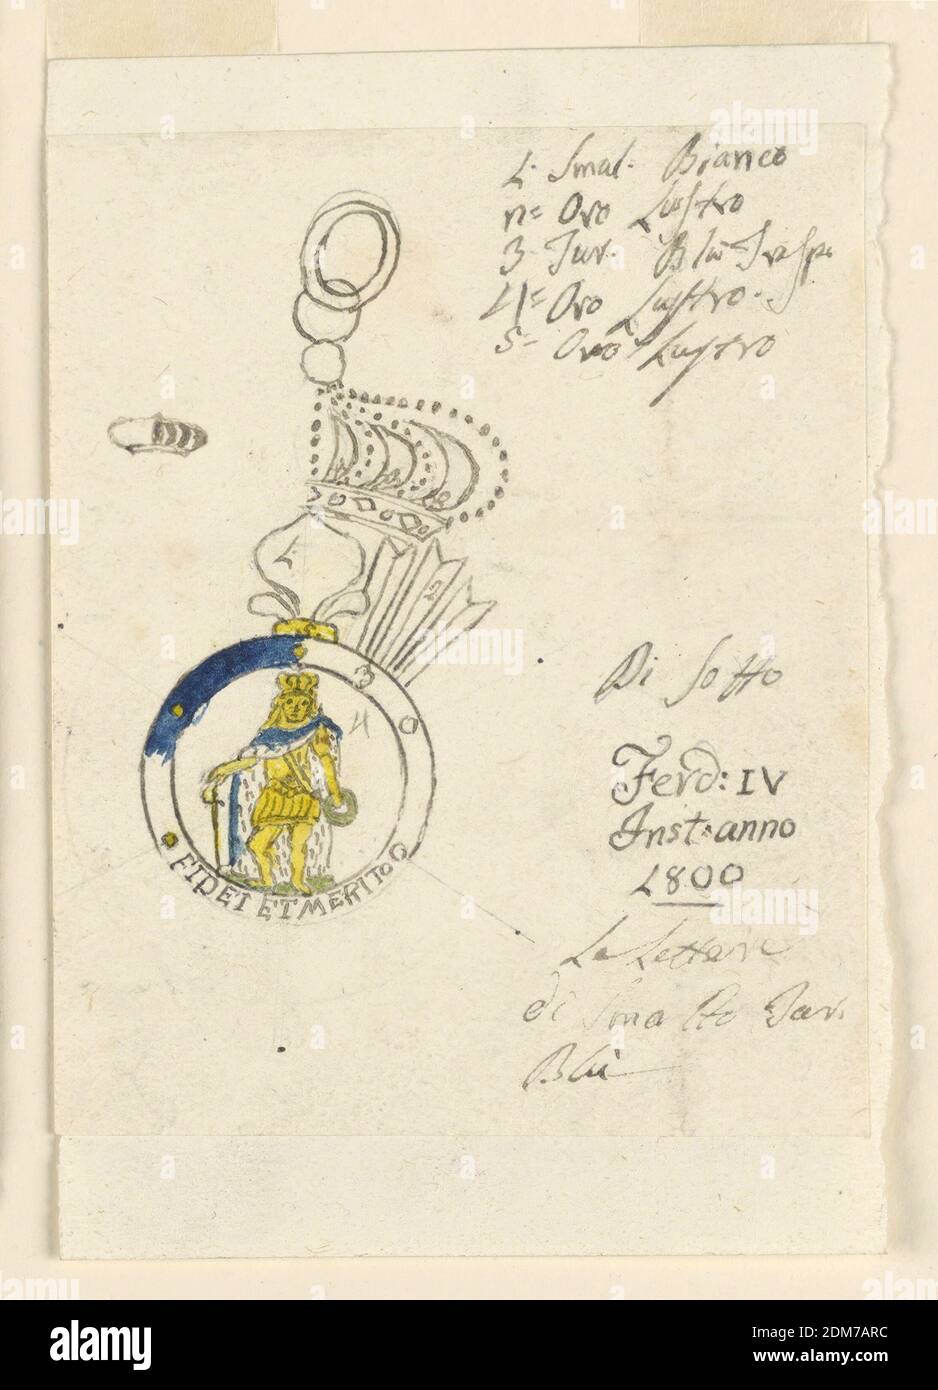 1. Smal. Bianco
n= Oro Lustro
3- Tur. Blu Trasp.
4= Oro Lustro.
5= Oro Lustro
1.
2
3
4
Di Sotto
FIDEI ET MERITO
Ferd: IV
Inst: anno
1800
Le Lettere
di Smalto Tur.
Blù
alamy
www.alamy.com
Image ID: 2DM7ARC